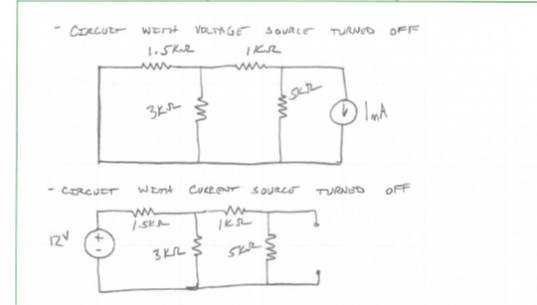 - CIRCUIT WITH VOLTAGE SOURCE TURNED OFF
1.5KΩ 1KΩ
3KΩ 5KΩ 1mA
- CIRCUIT WITH CURRENT SOURCE TURNED OFF
1.5KΩ 1KΩ
12V + - 3KΩ 5KΩ